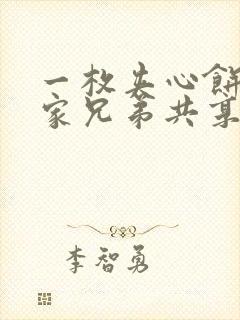 一枚夹心餅
家兄弟共某
李智勇